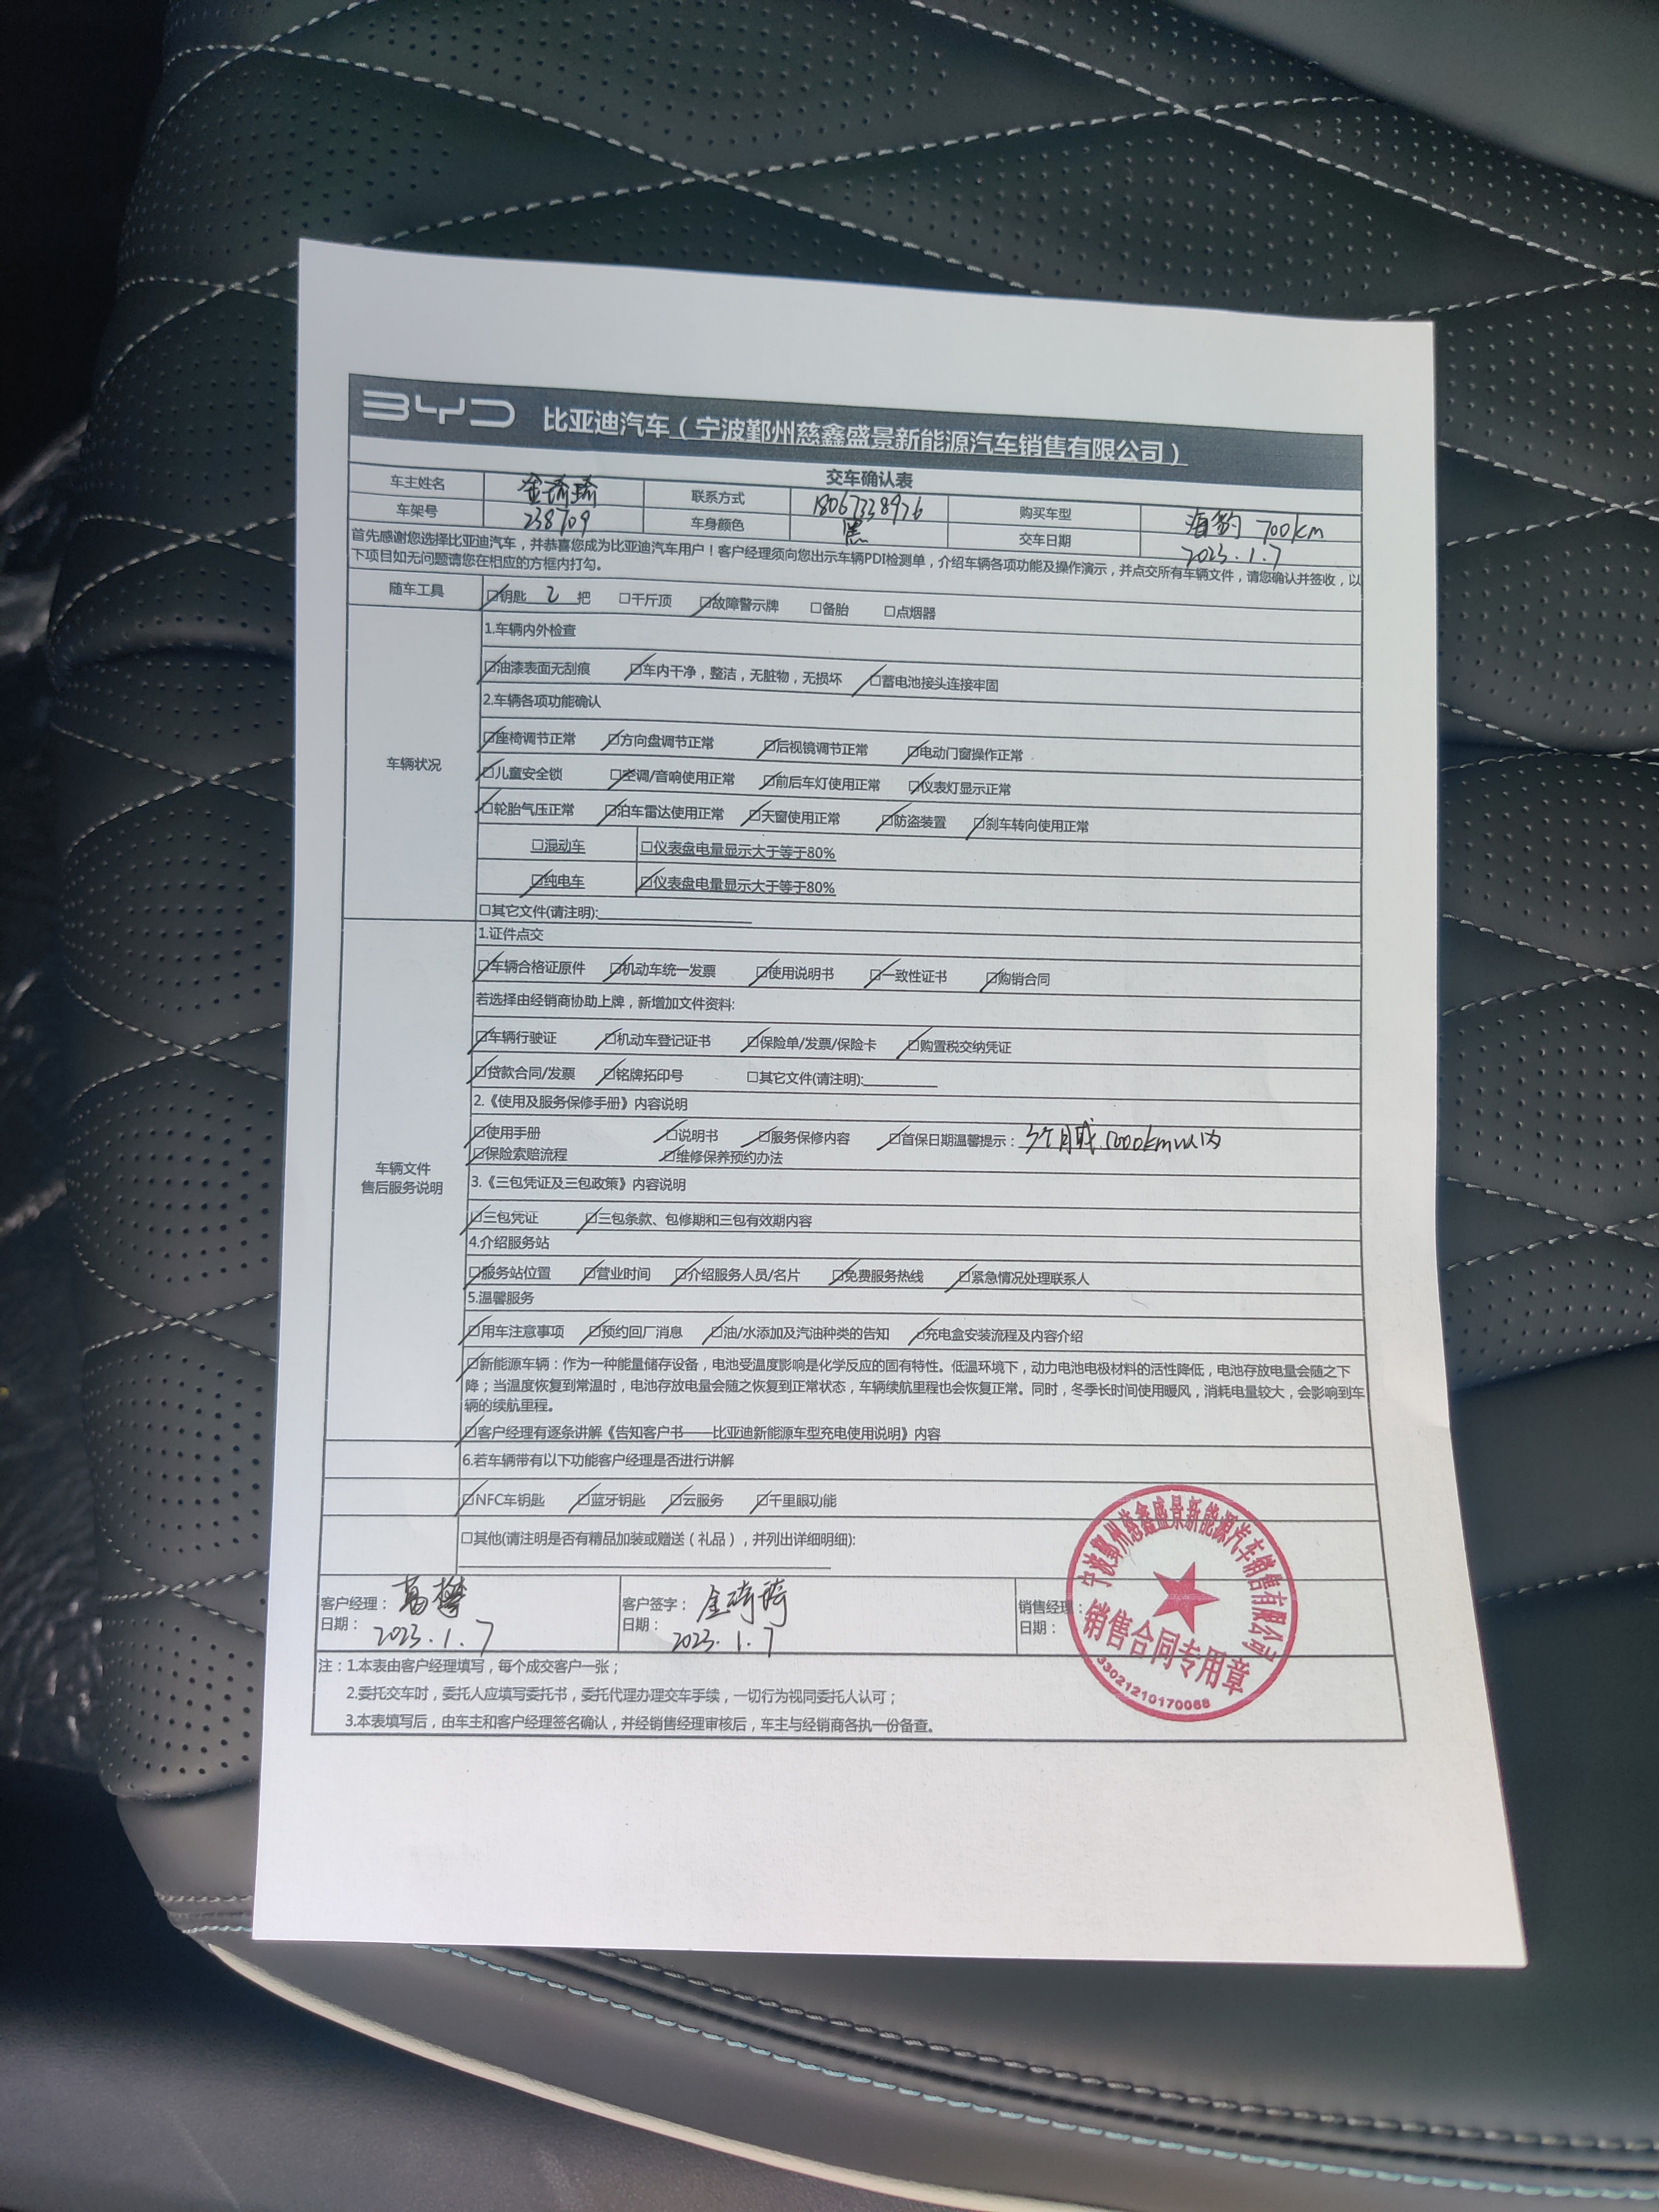 BYD 比亚迪汽车（宁波鄞州慈鑫盛景新能源汽车销售有限公司）
交车确认表
车主姓名 联系方式 18067338976 购买车型 海豹 700km
车架号 238709 车身颜色 黑 交车日期 2023.1.7
首先感谢您选择比亚迪汽车，并恭喜您成为比亚迪汽车用户！客户经理须向您出示车辆PDI检测单，介绍车辆各项功能及操作演示，并点交所有车辆文件，请您确认并签收，以
下项目如无问题请您在相应的方框内打勾。
随车工具 ☑钥匙 2 把 □千斤顶 ☑故障警示牌 □备胎 □点烟器
1.车辆内外检查
☑油漆表面无刮痕 ☑车内干净，整洁，无脏物，无损坏 ☑蓄电池接头连接牢固
2.车辆各项功能确认
☑座椅调节正常 ☑方向盘调节正常 ☑后视镜调节正常 ☑电动门窗操作正常
车辆状况
☑儿童安全锁 ☑空调/音响使用正常 ☑前后车灯使用正常 ☑仪表灯显示正常
☑轮胎气压正常 ☑泊车雷达使用正常 ☑天窗使用正常 ☑防盗装置 ☑刹车转向使用正常
□混动车 □仪表盘电量显示大于等于80%
☑纯电车 ☑仪表盘电量显示大于等于80%
□其它文件(请注明):
1.证件点交
☑车辆合格证原件 ☑机动车统一发票 ☑使用说明书 ☑一致性证书 ☑购销合同
若选择由经销商协助上牌，新增加文件资料:
☑车辆行驶证 ☑机动车登记证书 ☑保险单/发票/保险卡 ☑购置税交纳凭证
☑贷款合同/发票 ☑铭牌拓印号 □其它文件(请注明):
2.《使用及服务保修手册》内容说明
☑使用手册 ☑说明书 ☑服务保修内容 ☑首保日期温馨提示：3个月或5000km以内
☑保险索赔流程 ☑维修保养预约办法
车辆文件
售后服务说明
3.《三包凭证及三包政策》内容说明
☑三包凭证 ☑三包条款、包修期和三包有效期内容
4.介绍服务站
☑服务站位置 ☑营业时间 ☑介绍服务人员/名片 ☑免费服务热线 ☑紧急情况处理联系人
5.温馨服务
☑用车注意事项 ☑预约回厂消息 ☑油/水添加及汽油种类的告知 ☑充电盒安装流程及内容介绍
☑新能源车辆：作为一种能量储存设备，电池受温度影响是化学反应的固有特性。低温环境下，动力电池电极材料的活性降低，电池存放电量会随之下
降；当温度恢复到常温时，电池存放电量会随之恢复到正常状态，车辆续航里程也会恢复正常。同时，冬季长时间使用暖风，消耗电量较大，会影响到车
辆的续航里程。
☑客户经理有逐条讲解《告知客户书——比亚迪新能源车型充电使用说明》内容
6.若车辆带有以下功能客户经理是否进行讲解
☑NFC车钥匙 ☑蓝牙钥匙 ☑云服务 ☑千里眼功能
□其他(请注明是否有精品加装或赠送（礼品），并列出详细明细):
客户经理： 客户签字： 销售经理：
日期：2023.1.7 日期：2023.1.7 日期：
宁波鄞州慈鑫盛景新能源汽车销售有限公司
销售合同专用章
33021210170068
注：1.本表由客户经理填写，每个成交客户一张；
2.委托交车时，委托人应填写委托书，委托代理办理交车手续，一切行为视同委托人认可；
3.本表填写后，由车主和客户经理签名确认，并经销售经理审核后，车主与经销商各执一份备查。